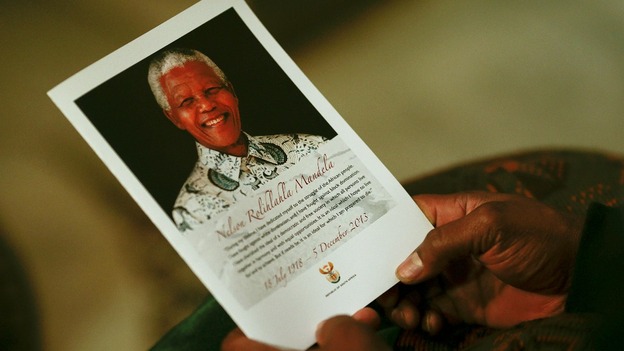 Nelson Rolihlahla Mandela
"During my lifetime I have dedicated myself to the struggle of the African people.
I have fought against white domination, and I have fought against black domination.
I have cherished the ideal of a democratic and free society in which all persons live
together in harmony and with equal opportunities. It is an ideal which I hope to live
for and to achieve. But if needs be, it is an ideal for which I am prepared to die."
18 July 1918 - 5 December 2013
REPUBLIC OF SOUTH AFRICA